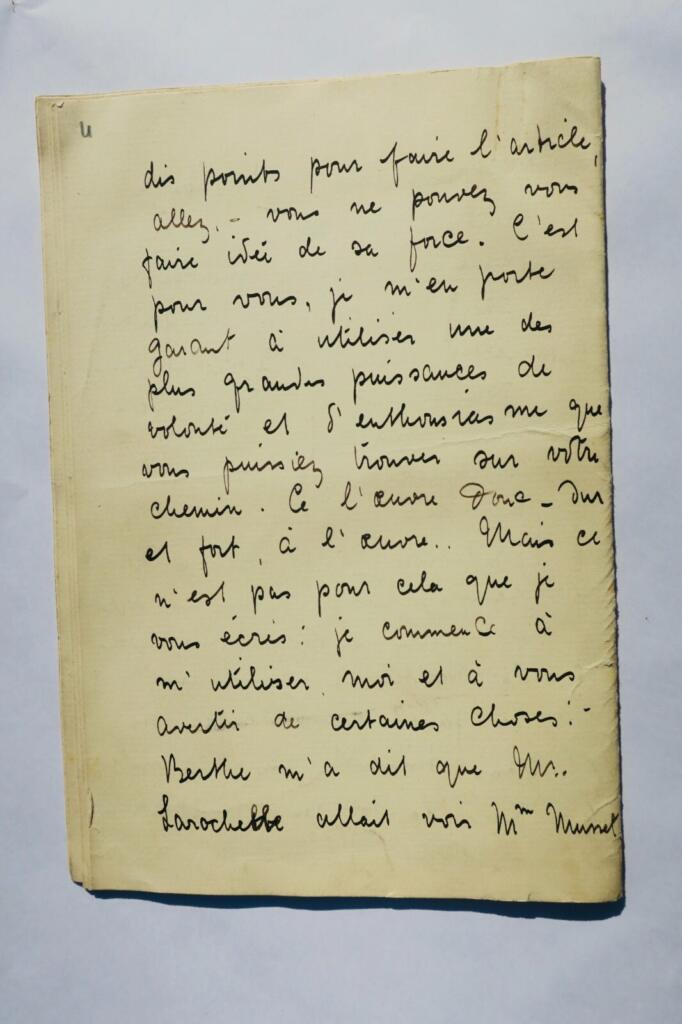 4
dis points pour faire l'article,
allez. - vous ne pouvez vous
faire idée de sa force. C'est
pour vous, je m'en porte
garant à utiliser une des
plus grandes puissances de
volonté et d'enthousiasme que
vous puissiez trouver sur votre
chemin. Ce l'œuvre donc - dur
et fort, à l'œuvre.. Mais ce
n'est pas pour cela que je
vous écris: je commence à
m'utiliser moi et à vous
avertir de certaines choses: -
Berthe m'a dit que Mr.
Larochelle allait voir Mm Musset